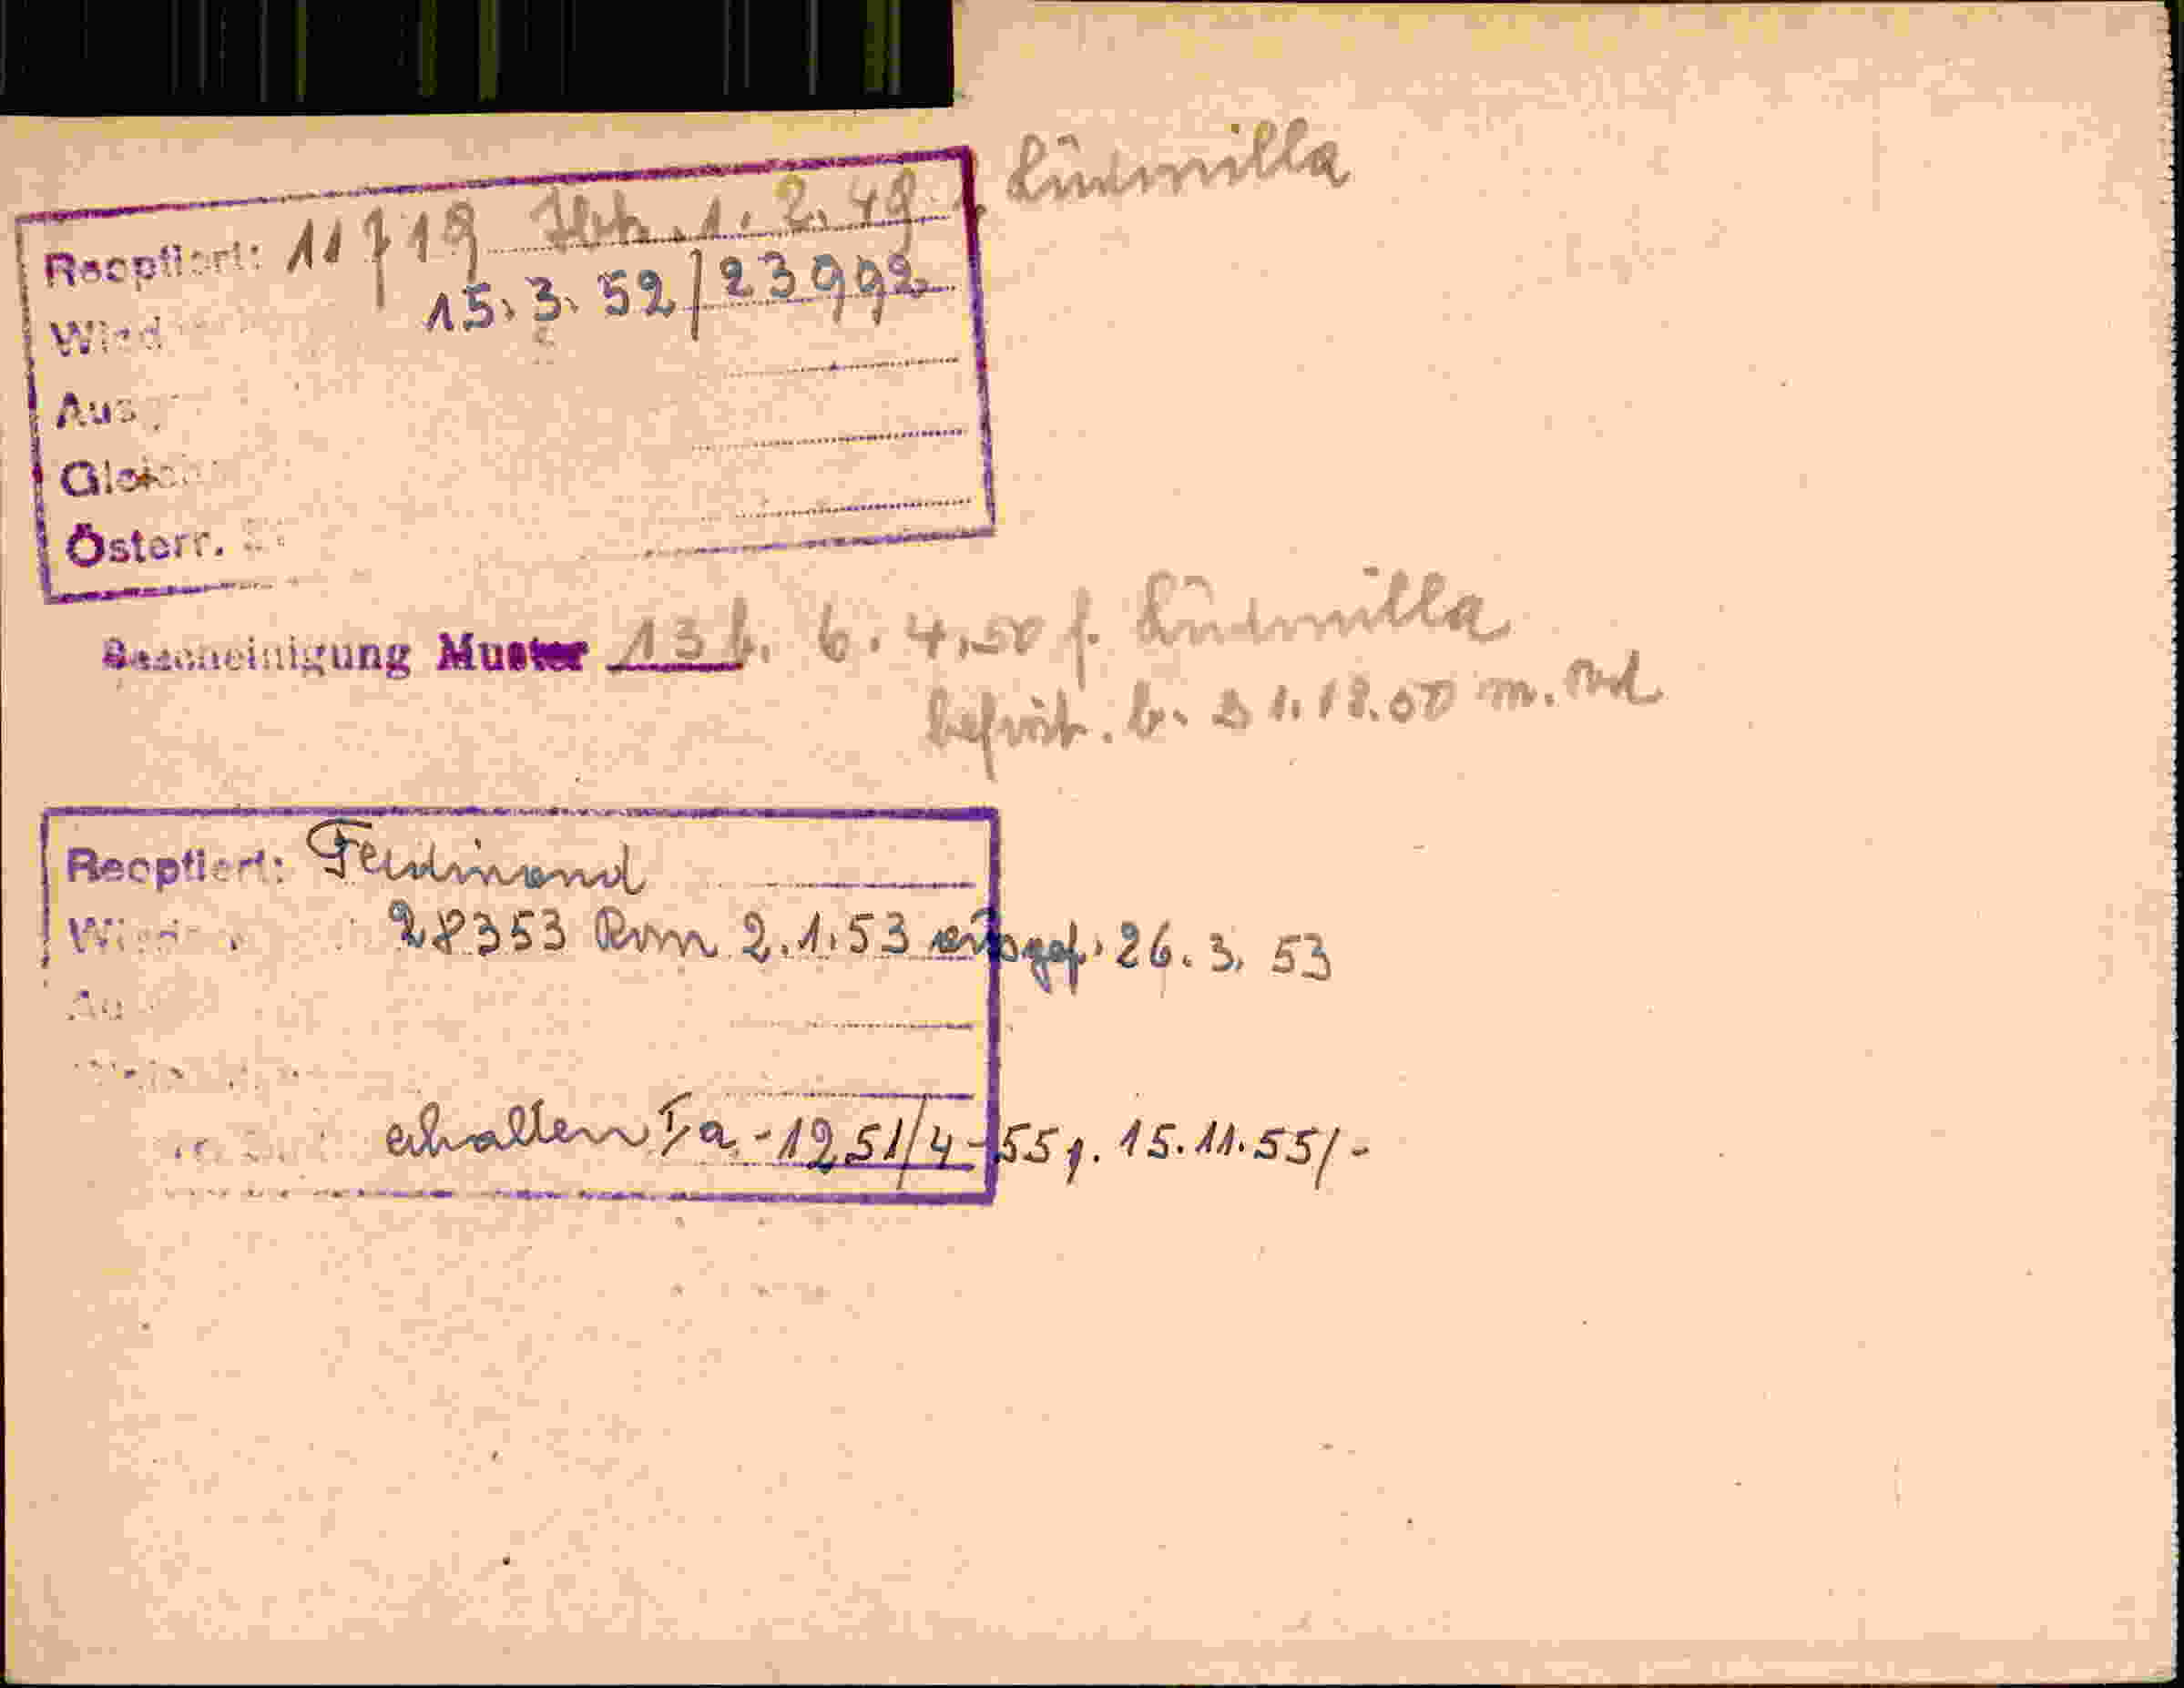 Reoptiert: 11719 Ibk. 1. 2. 49 Ludmilla
15. 3. 52/23992
Österr.
Bescheinigung Muster 13b. 6. 4. 50 f. Ludmilla
befrist. b. 31. 12. 50 m.
Reoptiert: Ferdinand
28353 Rom 2. 1. 53 ausgef. 26. 3. 53
erhalten Ia - 1251/4 - 55 1. 15. 11. 55/-